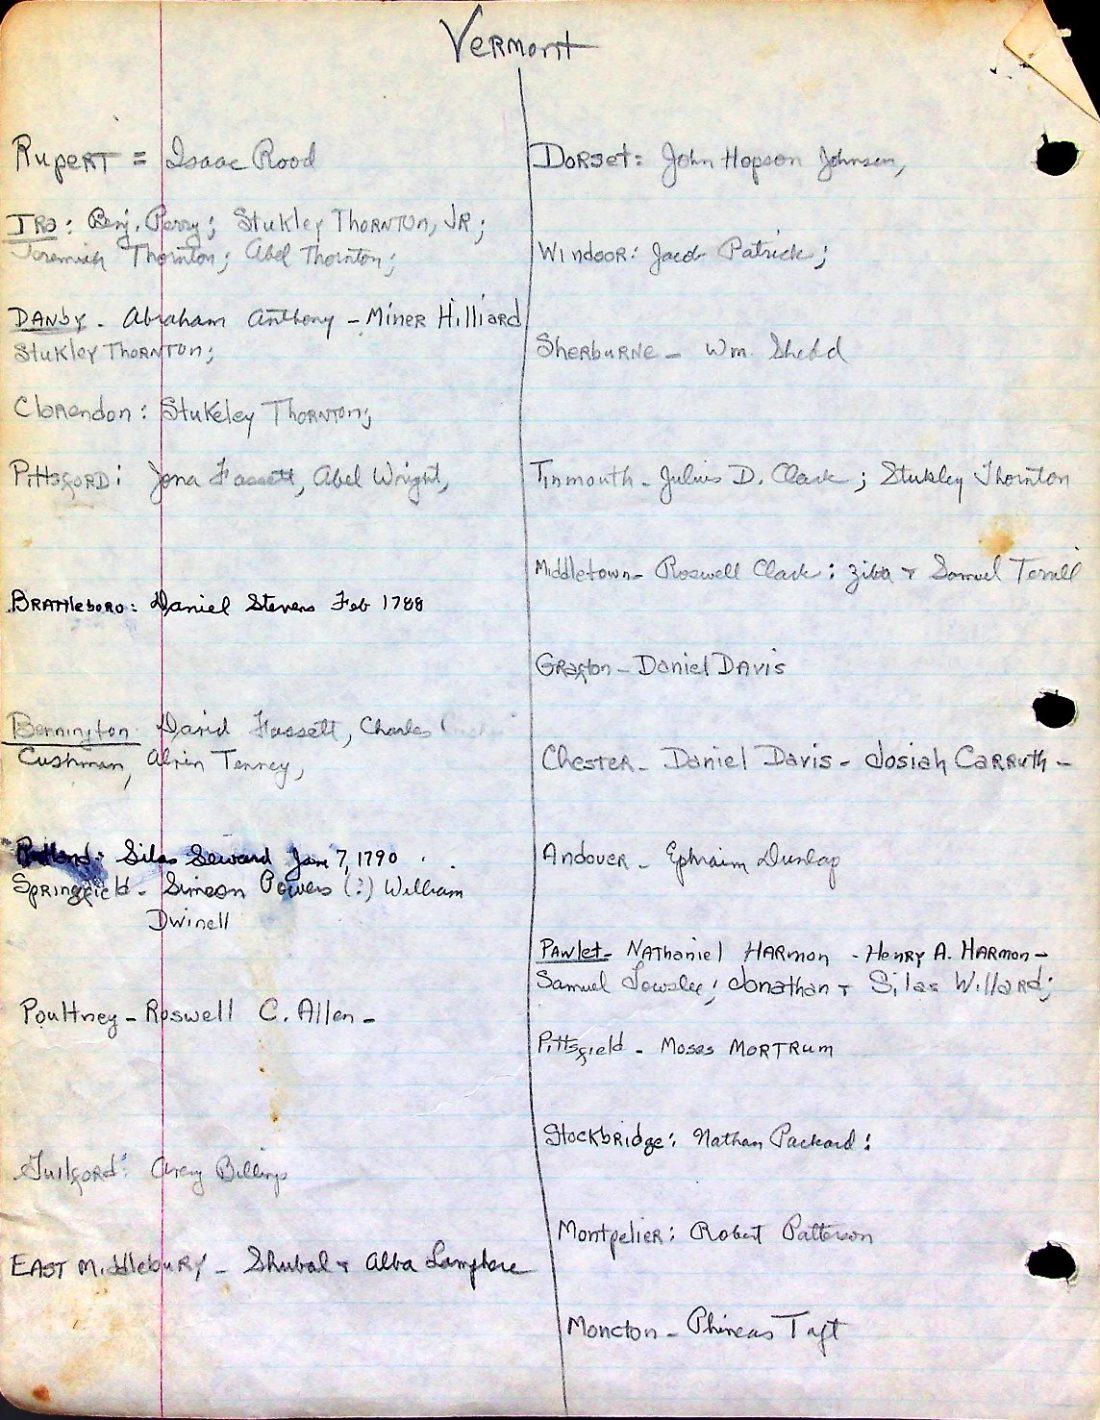 Vermont
Rupert = Isaac Rood
Ira: Benj. Perry; Stukley Thornton, Jr;
Jeremiah Thornton; Abel Thornton;
Danby - Abraham Anthony - Miner Hilliard
Stukley Thornton;
Clarendon: Stukeley Thornton;
Pittsford: Jona Fassett, Abel Wright,
Brattleboro: Daniel Stevens Feb 1788
Bennington David Fassett, Charles
Cushman, Alvin Tenney,
Rutland: Silas Seward Jan 7, 1790
Springfield - Simeon Powers (?) William
Dwinell
Poultney - Roswell C. Allen -
Guilford: Avery Billings
East Middlebury - Shubal + Alba Lamphere
Dorset: John Hopson Johnson,
Windsor: Jacob Patrick;
Sherburne - Wm. Shedd
Tinmouth - Julius D. Clark; Stukley Thornton
Middletown - Roswell Clark: Ziba + Samuel Terrill
Grafton - Daniel Davis
Chester - Daniel Davis - Josiah Carruth -
Andover - Ephraim Dunlap
Pawlet - Nathaniel Harmon - Henry A. Harmon -
Samuel Towslee; Jonathan + Silas Willard;
Pittsfield - Moses Mortrum
Stockbridge: Nathan Packard:
Montpelier: Robert Patterson
Moncton - Phineas Taft